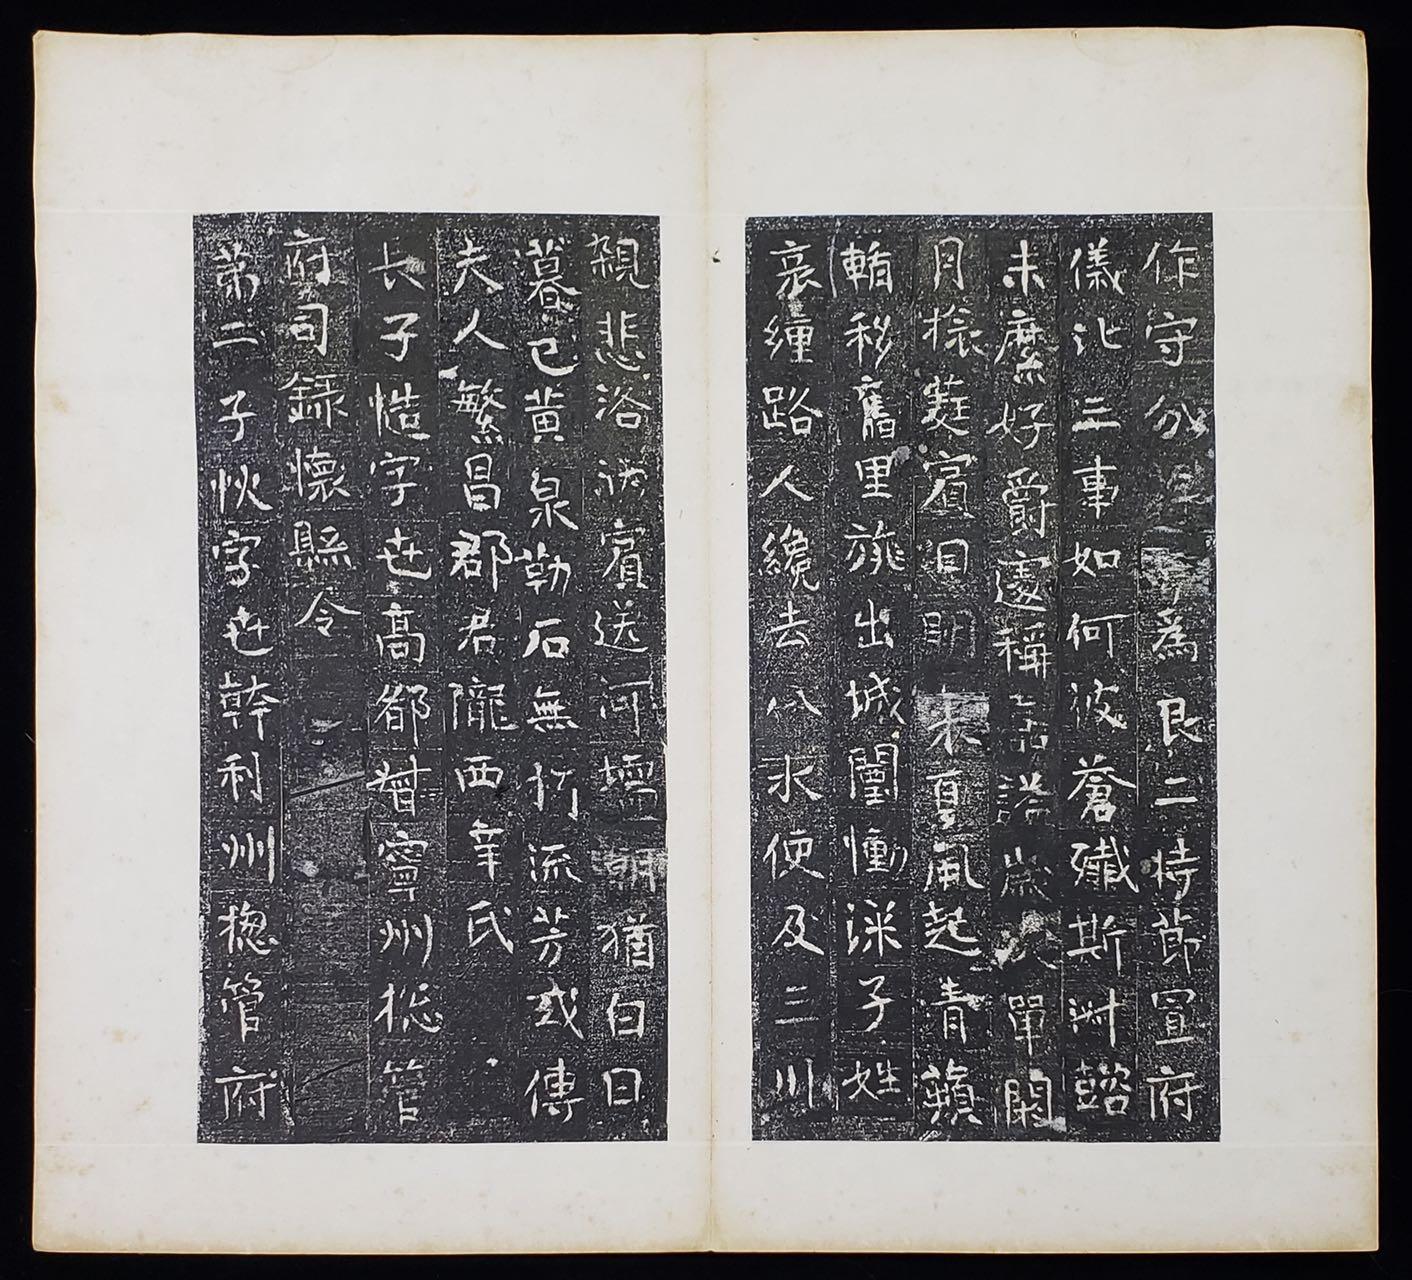 作守分陝為良二持節宣府
儀汎三事如何彼蒼殲斯明懿
未縻好爵遽稱言誄歲次單閼
月振蕤賓日明朱夏風起青蘋
輴移舊里旐出城闉慟深子姓
哀纏路人纔去八水便及三川
親悲洛汭賓送河壖朝猶白日
暮已黃泉勒石無朽流芳或傳
夫人繁昌郡君隴西辛氏
長子慥字世高都督寧州總管
府司錄懷縣令
第二子恢字世幹利州總管府